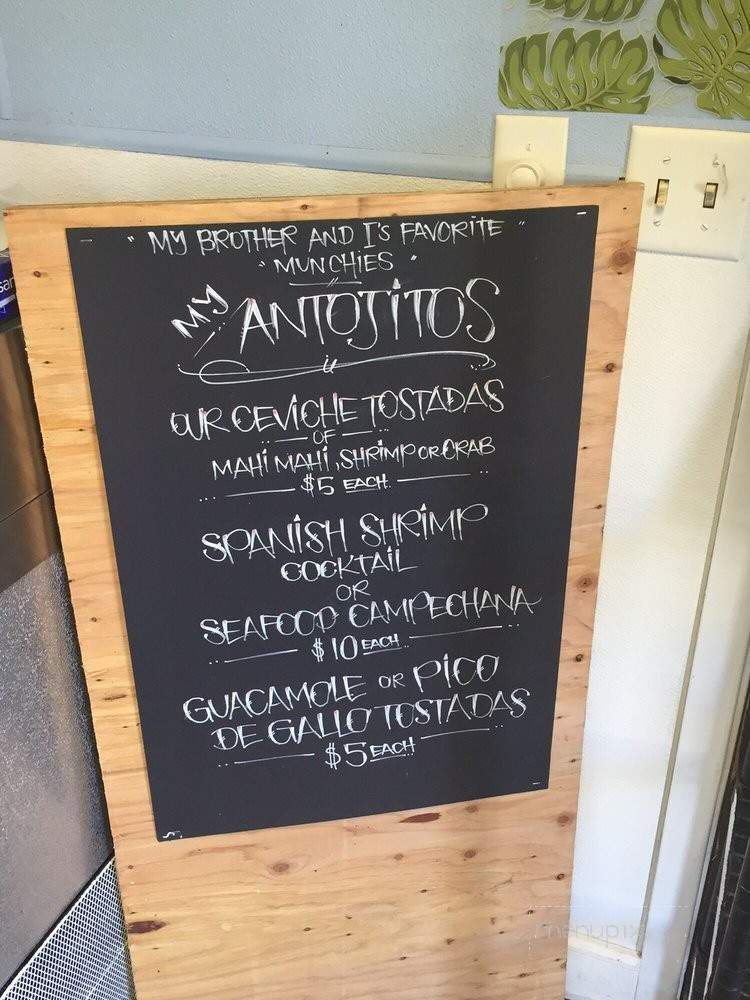 " MY BROTHER AND I'S FAVORITE "
" MUNCHIES "
MY ANTOJITOS
OUR CEVICHE TOSTADAS
OF
MAHI MAHI, SHRIMP OR CRAB
$5 EACH
SPANISH SHRIMP
COCKTAIL
OR
SEAFOOD CAMPECHANA
$10 EACH
GUACAMOLE OR PICO
DE GALLO TOSTADAS
$5 EACH
menupix